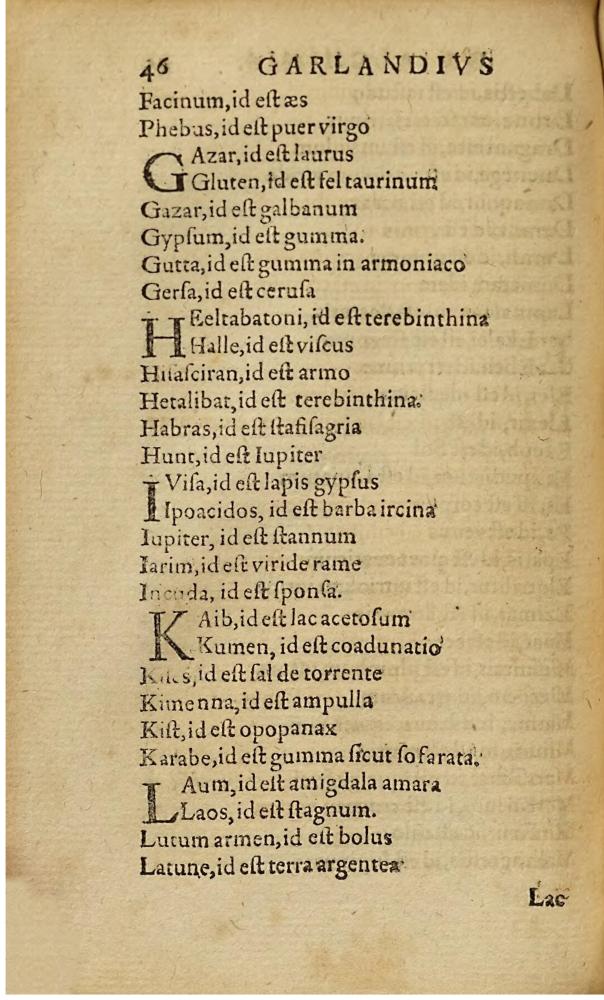 46 GARLANDIVS
Facinum,id eſt æs
Phebus,id eſt puer virgo
GAzar,id eſt laurus
Gluten,id eſt fel taurinum
Gazar,id eſt galbanum
Gypſum,id eſt gumma.
Gutta,id eſt gumma in armoniaco
Gerſa,id eſt ceruſa
HEeltabatoni, id eſt terebinthina
Halle,id eſt viſcus
id eſt armo
Hetalibat,id eſt terebinthina.
Habras,id eſt ſtafiſagria
Hunt,id eſt Iupiter
IViſa,id eſt lapis gypſus
Ipoacidos, id eſt barba ircina
Iupiter, id eſt ſtannum
Iarim,id eſt viride rame
id eſt ſponſa.
KAib,id eſt lac acetoſum
Kumen, id eſt coadunatio
id eſt ſal de torrente
Kimenna,id eſt ampulla
Kiſt,id eſt opopanax
Karabe,id eſt gumma ſicut ſofarata.
LAum,id eſt amigdala amara
Laos,id eſt ſtagnum.
Lutum armen,id eſt bolus
Latune,id eſt terra argentea
Lac